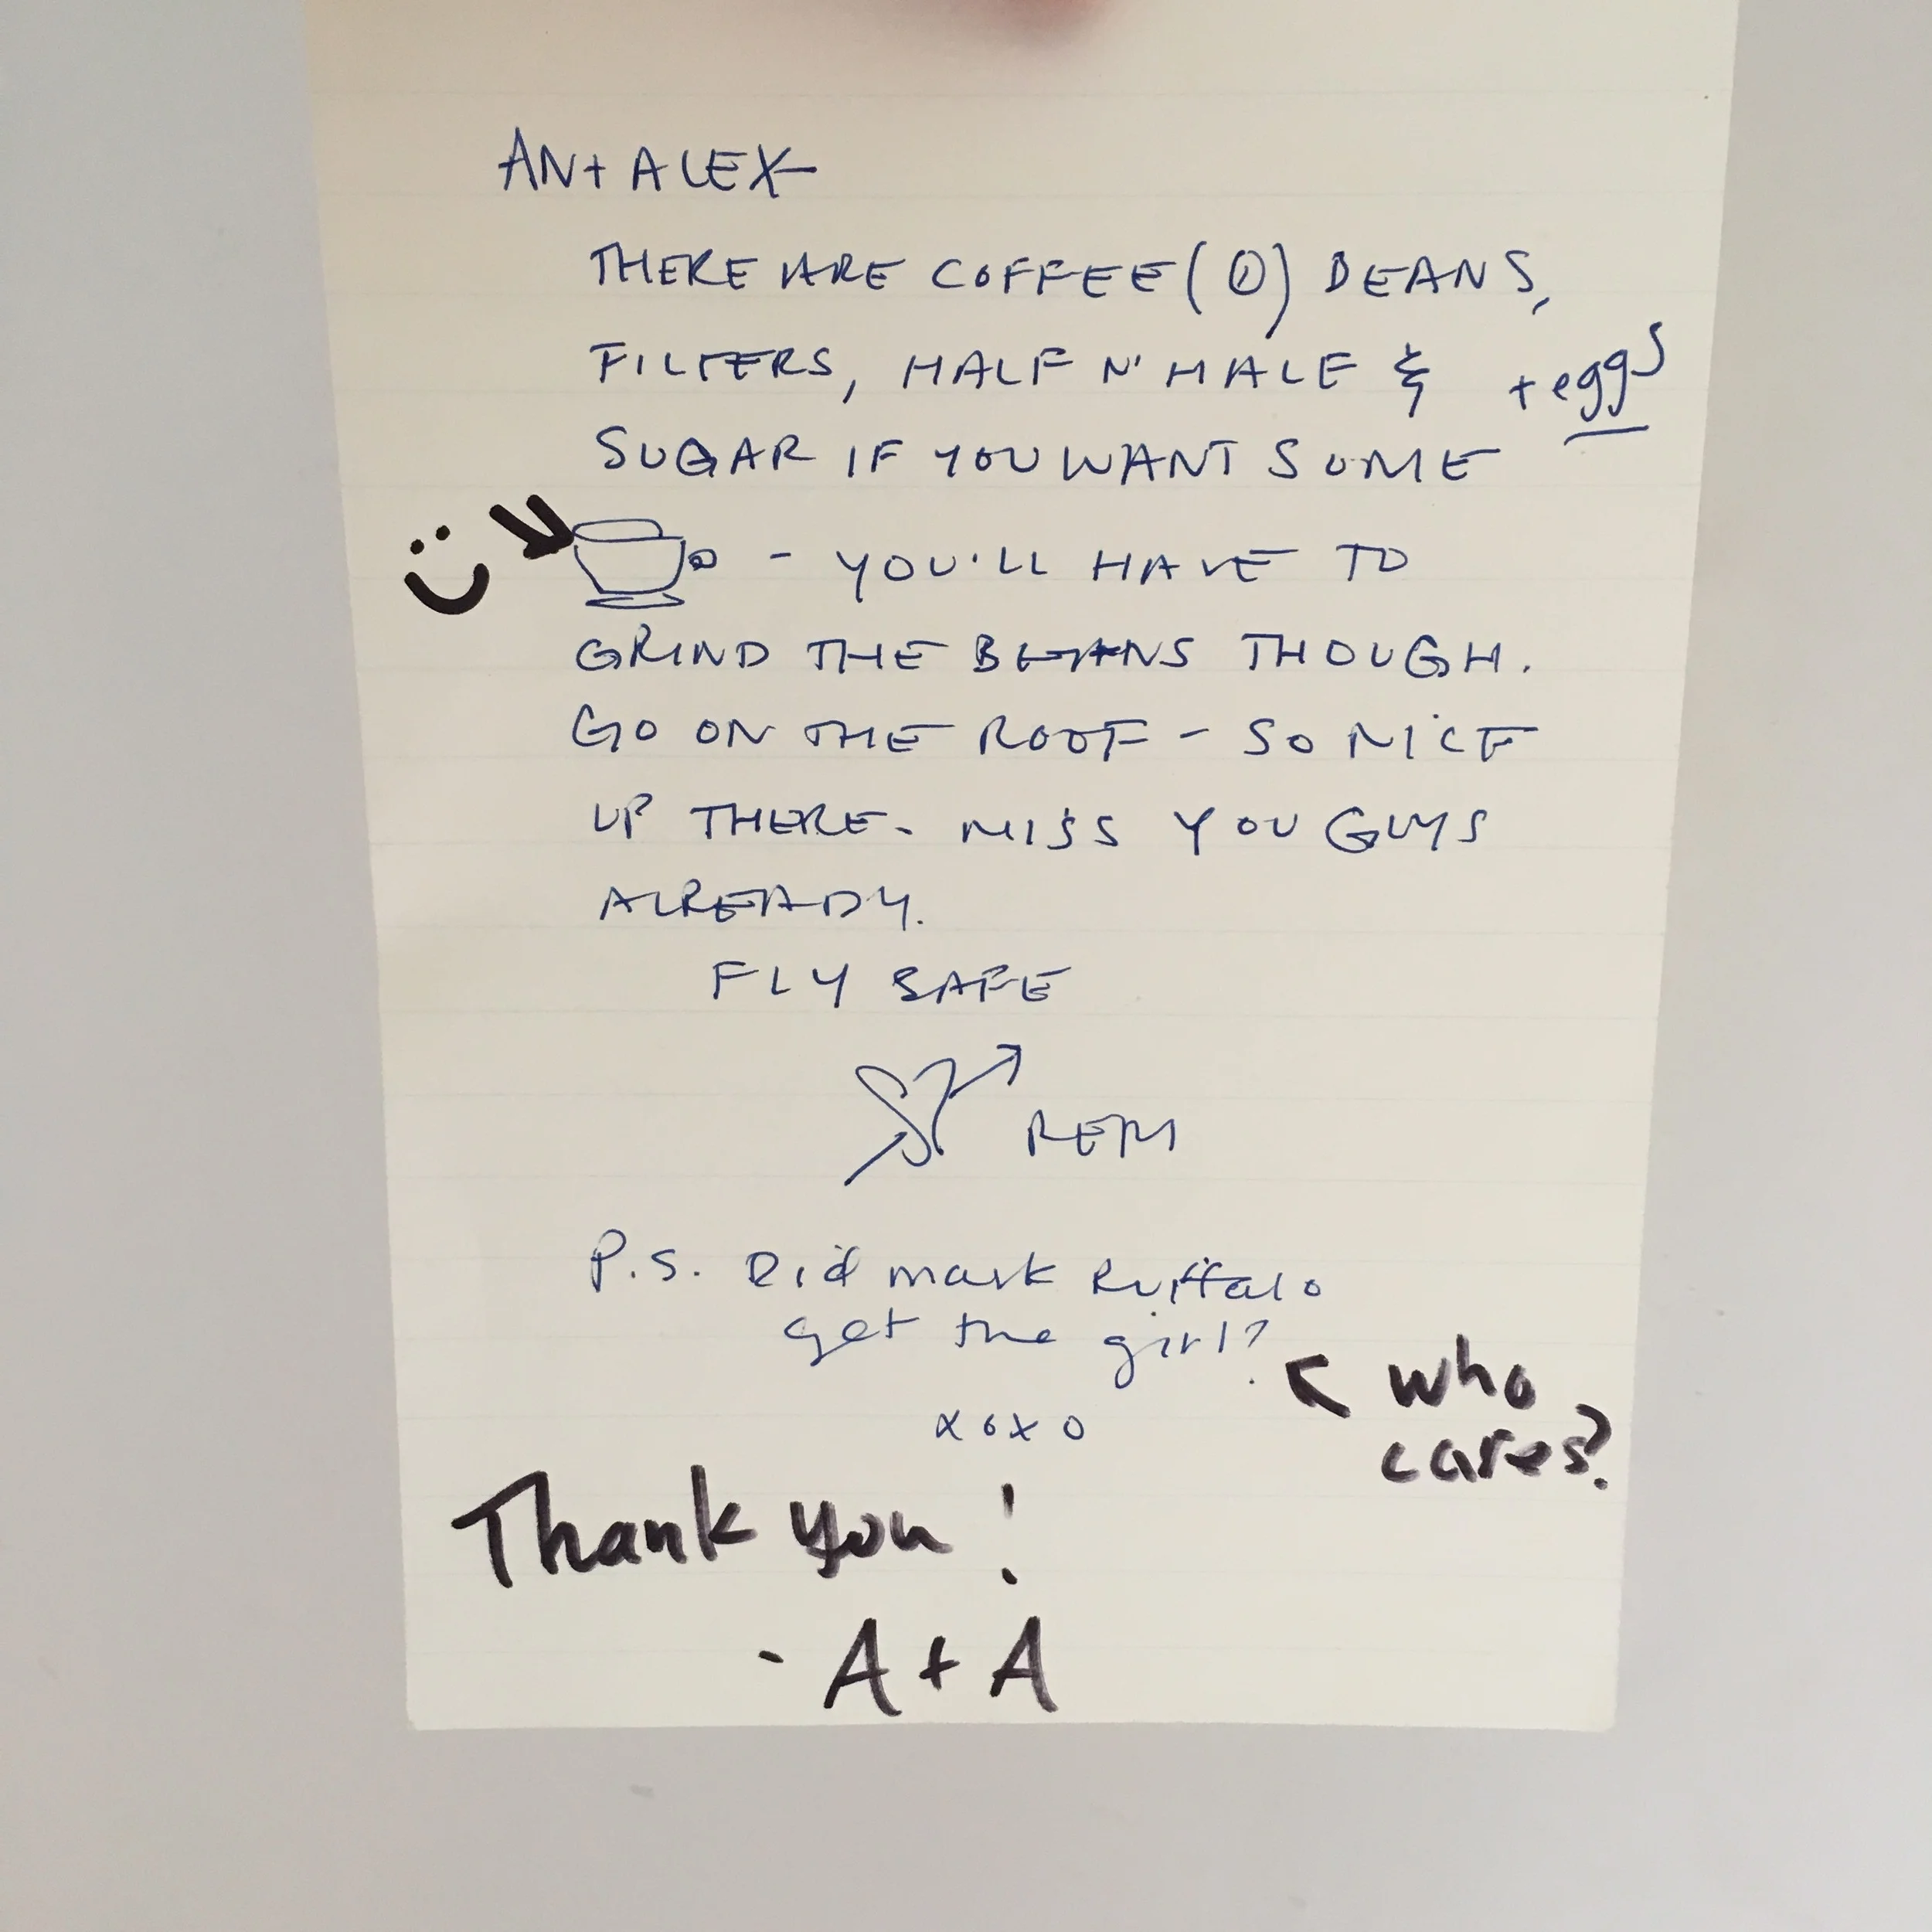 AN + ALEX—
THERE ARE COFFEE ( ) BEANS,
FILTERS, HALF N' HALF &
+ eggs
SUGAR IF YOU WANT SOME
- YOU'LL HAVE TO
GRIND THE BEANS THOUGH.
GO ON THE ROOF - SO NICE
UP THERE. MISS YOU GUYS
ALREADY.
FLY SAFE
REM
P.S. Did mark Ruffalo
get the girl?
who
cares?
xoxo
Thank you!
- A + A